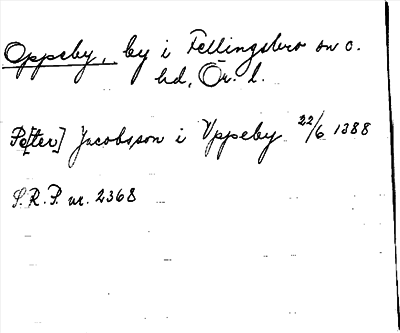 Oppeby, by i Fellingsbro sn o.
hd, Ör. l.
Pe[ter] Jacobsson i Uppeby 22/6 1388
S.R.P. nr. 2368